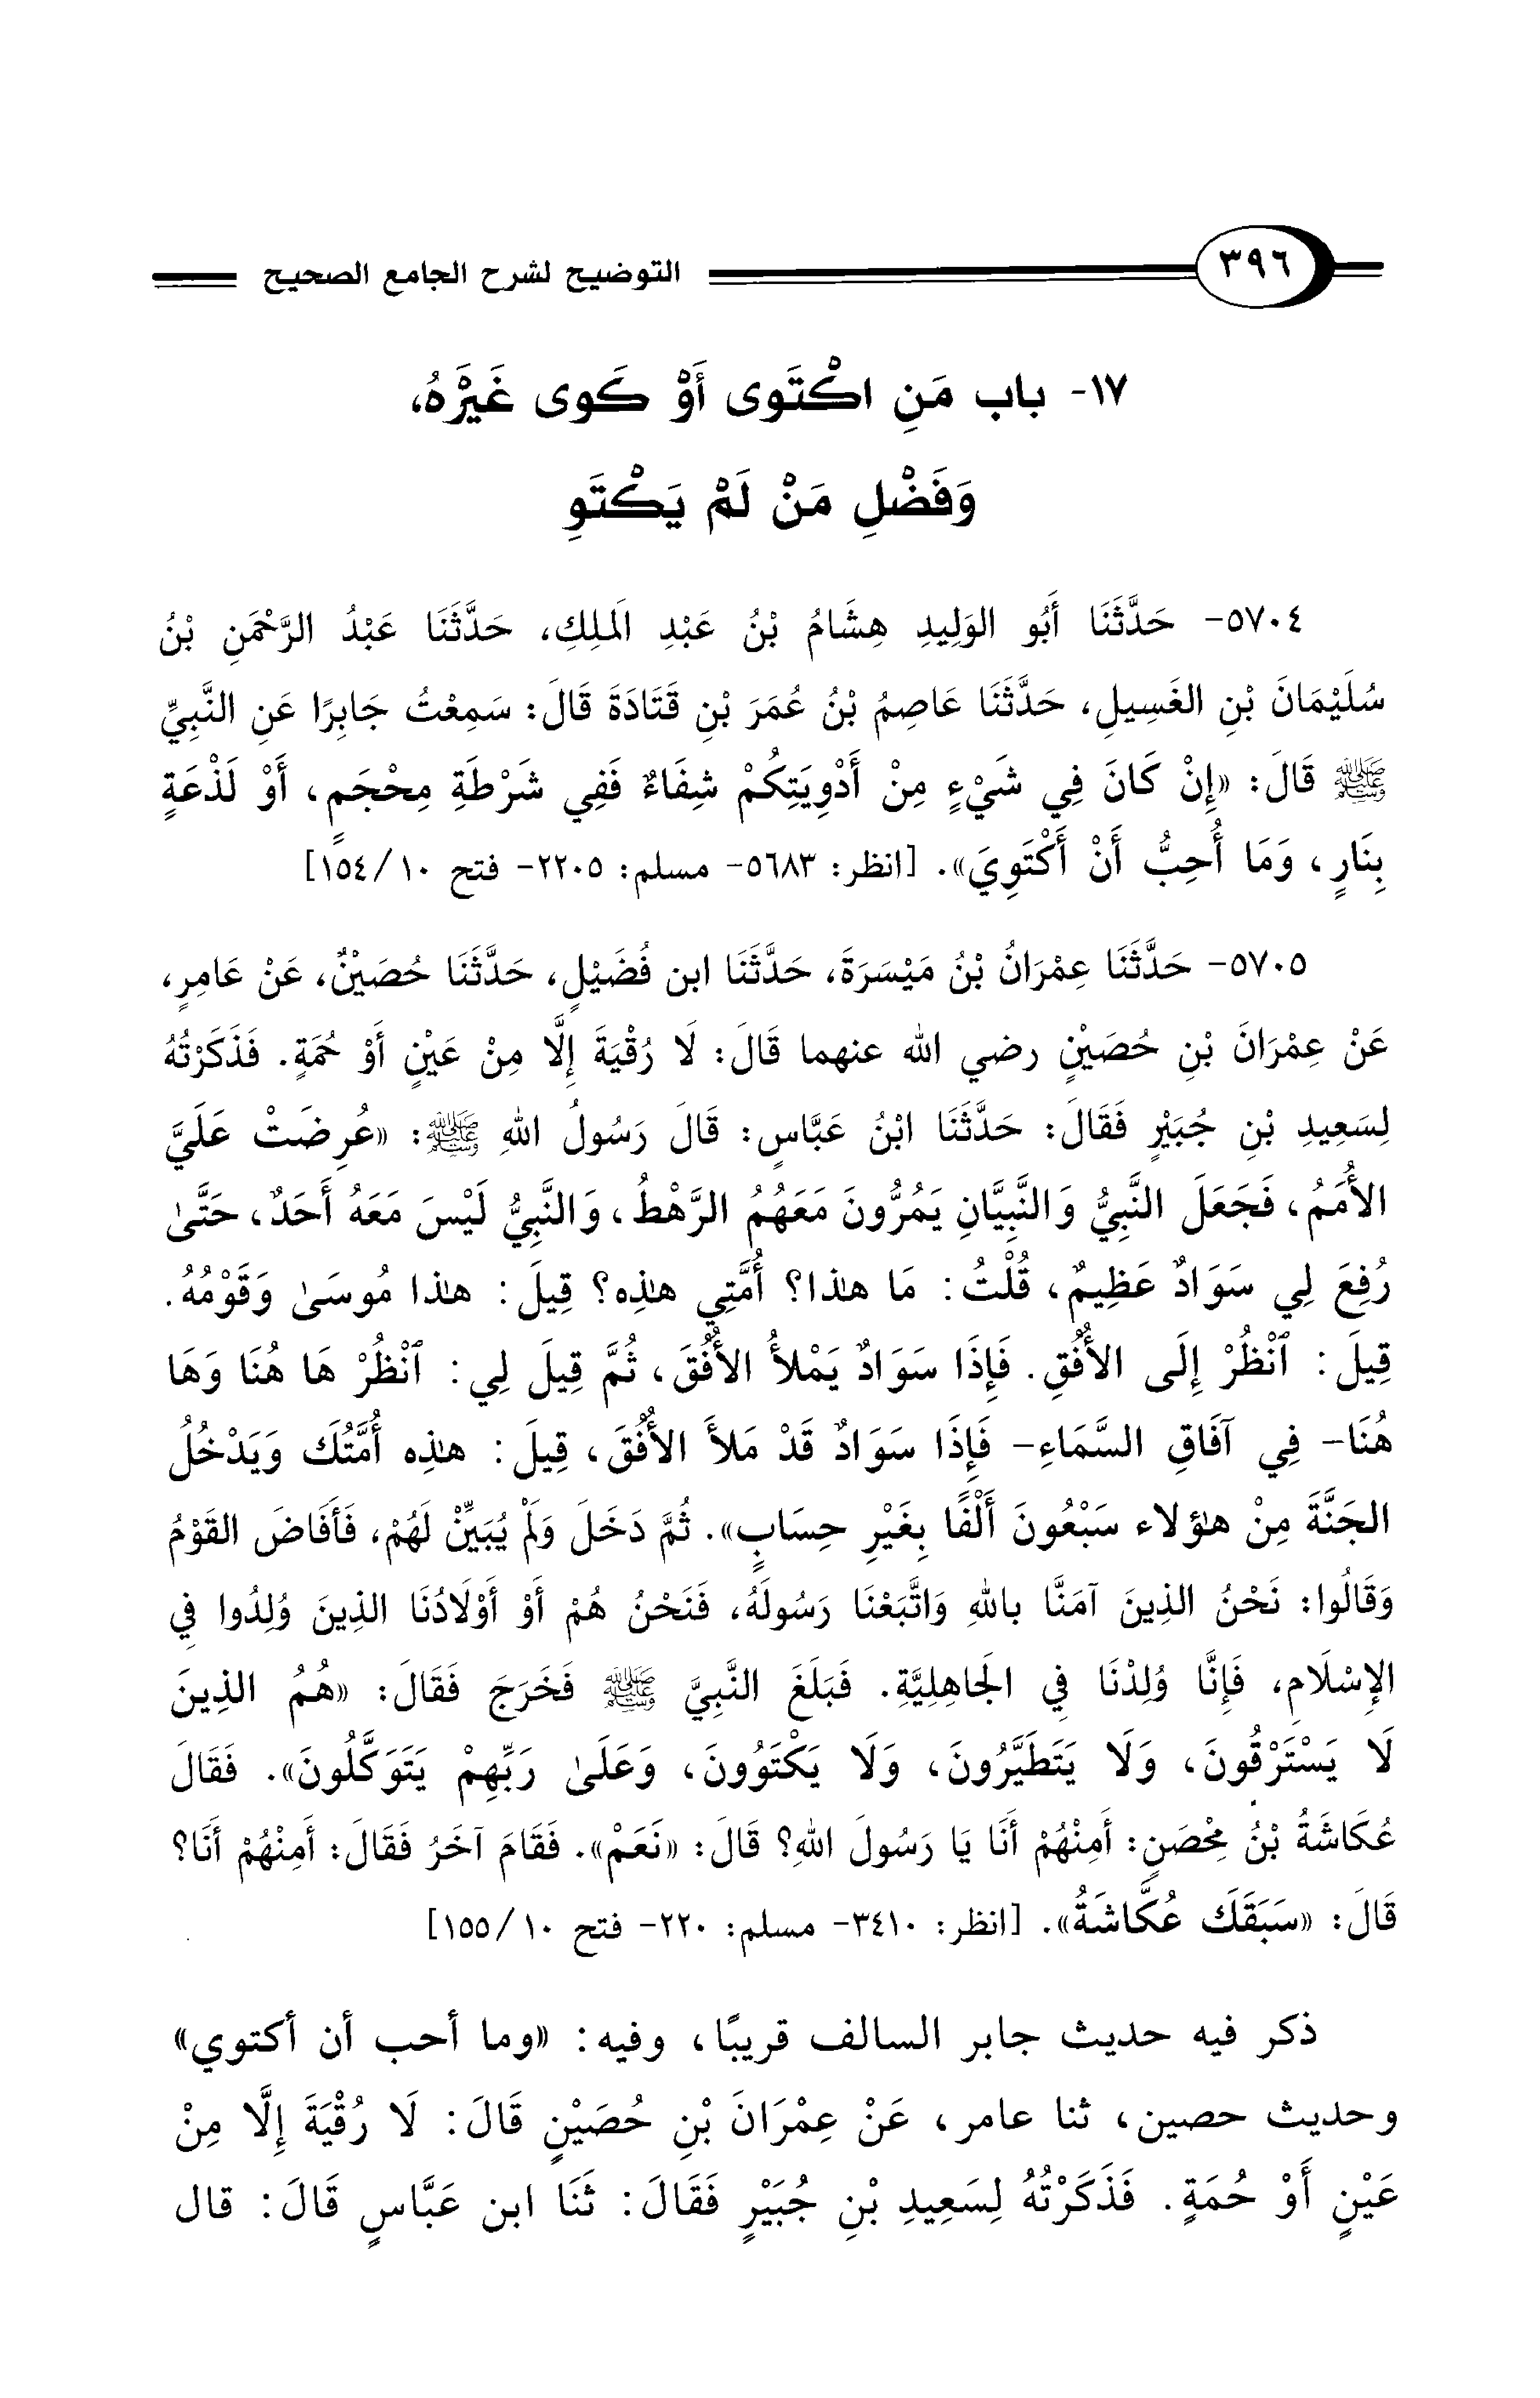 ٣٩٦ التوضيح لشرح الجامع الصحيح
١٧- باب مَنِ اكْتَوى أَوْ كَوى غَيْرَهُ،
وَفَضْلِ مَنْ لَمْ يَكْتَوِ
٥٧٠٤- حَدَّثَنَا أَبُو الوَلِيدِ هِشَامُ بْنُ عَبْدِ الَملِكِ، حَدَّثَنَا عَبْدُ الرَّحْمَنِ بْنُ
سُلَيْمَانَ بْنِ الغَسِيلِ، حَدَّثَنَا عَاصِمُ بْنُ عُمَرَ بْنِ قَتَادَةَ قَالَ: سَمِعْتُ جَابِرًا عَنِ النَّبِيِّ
ﷺ قَالَ: «إِنْ كَانَ فِي شَيْءٍ مِنْ أَدْوِيَتِكُمْ شِفَاءٌ فَفِي شَرْطَةِ مِحْجَمٍ، أَوْ لَذْعَةٍ
بِنَارٍ، وَمَا أُحِبُّ أَنْ أَكْتَوِيَ». [انظر: ٥٦٨٣- مسلم: ٢٢٠٥- فتح ١٠/ ١٥٤]
٥٧٠٥- حَدَّثَنَا عِمْرَانُ بْنُ مَيْسَرَةَ، حَدَّثَنَا ابن فُضَيْلٍ، حَدَّثَنَا حُصَيْنٌ، عَنْ عَامِرٍ،
عَنْ عِمْرَانَ بْنِ حُصَيْنٍ رضي الله عنهما قَالَ: لَا رُقْيَةَ إِلَّا مِنْ عَيْنٍ أَوْ حُمَةٍ. فَذَكَرْتُهُ
لِسَعِيدِ بْنِ جُبَيْرٍ فَقَالَ: حَدَّثَنَا ابْنُ عَبَّاسٍ: قَالَ رَسُولُ اللهِ ﷺ: «عُرِضَتْ عَلَيَّ
الأُمَمُ، فَجَعَلَ النَّبِيُّ وَالنَّبِيَّانِ يَمُرُّونَ مَعَهُمُ الرَّهْطُ، وَالنَّبِيُّ لَيْسَ مَعَهُ أَحَدٌ، حَتَّىٰ
رُفِعَ لِي سَوَادٌ عَظِيمٌ، قُلْتُ: مَا هٰذا؟ أُمَّتِي هٰذِه؟ قِيلَ: هٰذا مُوسَىٰ وَقَوْمُهُ.
قِيلَ: ٱنْظُرْ إِلَى الأُفُقِ. فَإِذَا سَوَادٌ يَمْلأُ الأُفُقَ، ثُمَّ قِيلَ لِي: ٱنْظُرْ هَا هُنَا وَهَا
هُنَا- فِي آفَاقِ السَّمَاءِ- فَإِذَا سَوَادٌ قَدْ مَلأَ الأُفُقَ، قِيلَ: هٰذِه أُمَّتُكَ وَيَدْخُلُ
الجَنَّةَ مِنْ هٰؤلاء سَبْعُونَ أَلْفًا بِغَيْرِ حِسَابٍ». ثُمَّ دَخَلَ وَلَمْ يُبَيِّنْ لَهُمْ، فَأَفَاضَ القَوْمُ
وَقَالُوا: نَحْنُ الذِينَ آمَنَّا باللهِ وَاتَّبَعْنَا رَسُولَهُ، فَنَحْنُ هُمْ أَوْ أَوْلَادُنَا الذِينَ وُلِدُوا فِي
الإِسْلَامِ، فَإِنَّا وُلِدْنَا فِي الَجاهِلِيَّةِ. فَبَلَغَ النَّبِيَّ ﷺ فَخَرَجَ فَقَالَ: «هُمُ الذِينَ
لَا يَسْتَرْقُونَ، وَلَا يَتَطَيَّرُونَ، وَلَا يَكْتَوُونَ، وَعَلَىٰ رَبِّهِمْ يَتَوَكَّلُونَ». فَقَالَ
عُكَاشَةُ بْنُ مِحْصَنٍ: أَمِنْهُمْ أَنَا يَا رَسُولَ اللهِ؟ قَالَ: «نَعَمْ». فَقَامَ آخَرُ فَقَالَ: أَمِنْهُمْ أَنَا؟
قَالَ: «سَبَقَكَ عُكَّاشَةُ». [انظر: ٣٤١٠- مسلم: ٢٢٠- فتح ١٠/ ١٥٥]
ذكر فيه حديث جابر السالف قريبًا، وفيه: «وما أحب أن أكتوي»
وحديث حصين، ثنا عامر، عَنْ عِمْرَانَ بْنِ حُصَيْنٍ قَالَ: لَا رُقْيَةَ إِلَّا مِنْ
عَيْنٍ أَوْ حُمَةٍ. فَذَكَرْتُهُ لِسَعِيدِ بْنِ جُبَيْرٍ فَقَالَ: ثَنَا ابن عَبَّاسٍ قَالَ: قال